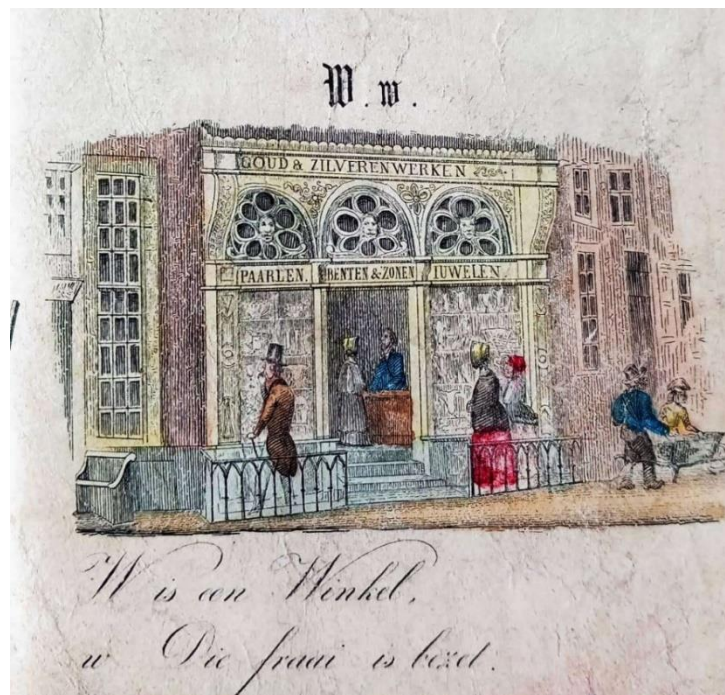 W. w.
GOUD & ZILVERENWERKEN
PAARLEN. BENTEN & ZONEN IUWELEN.
W is een Winkel,
w Die fraai is bezet.